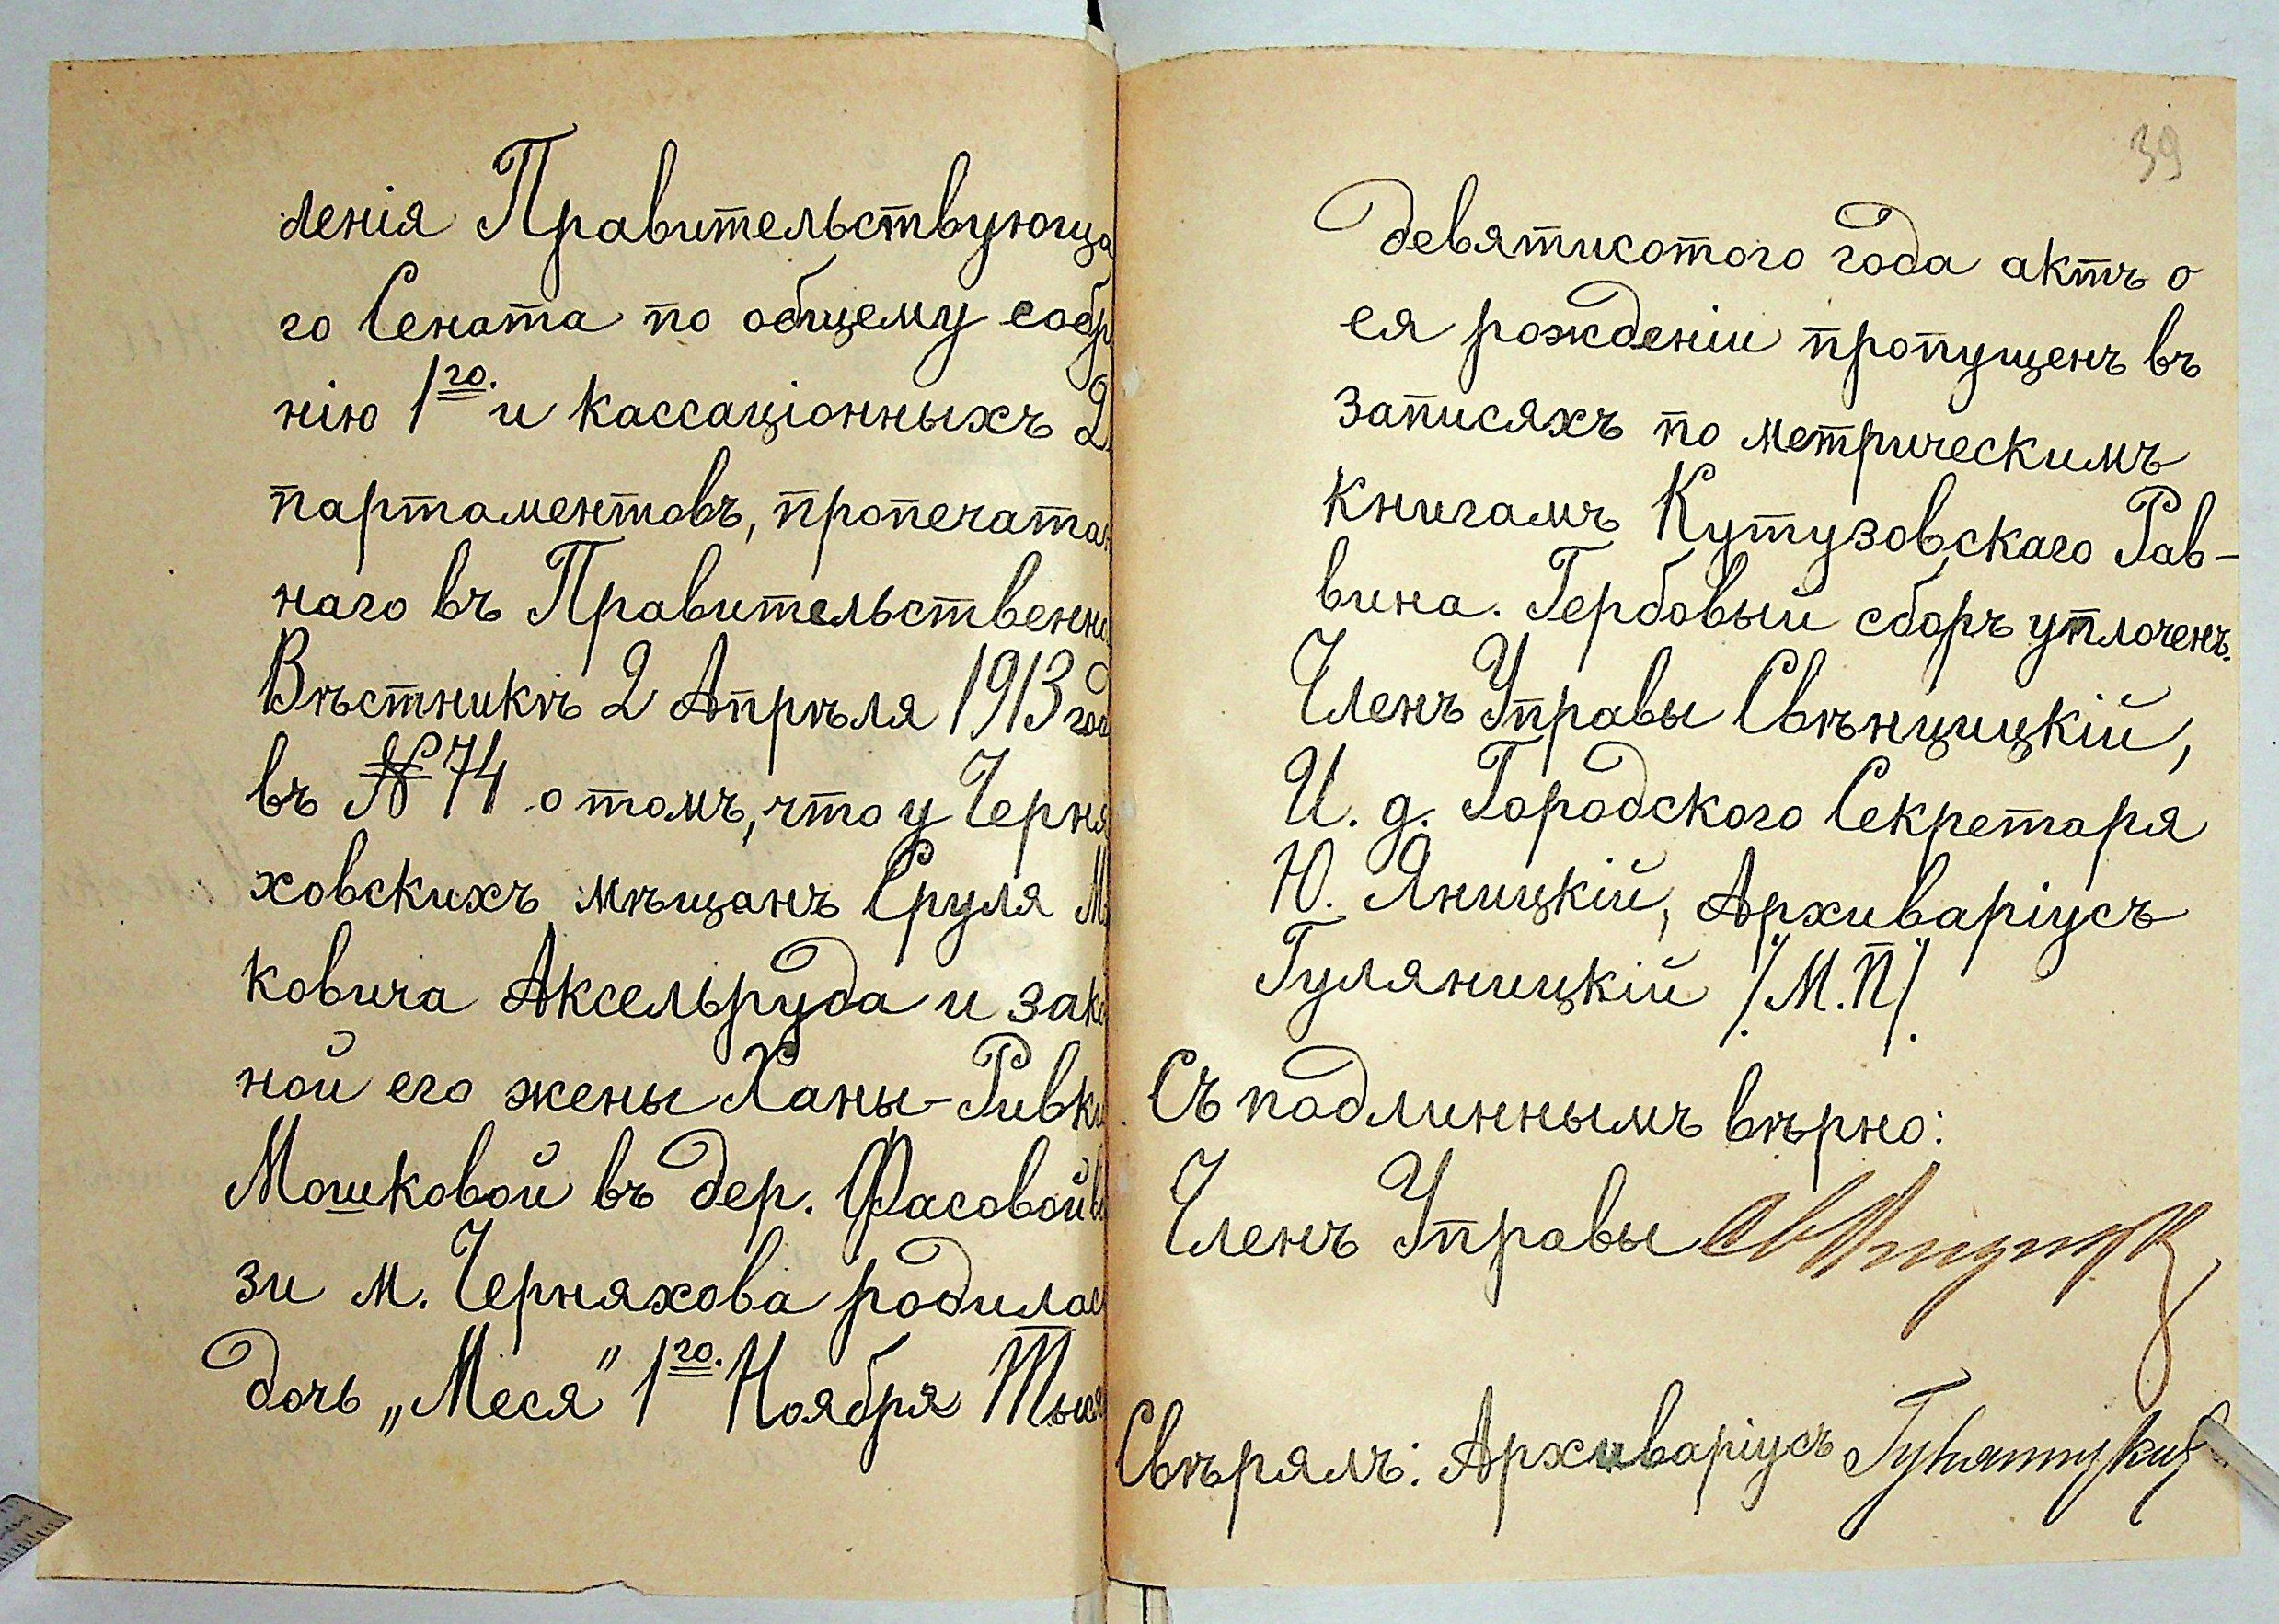 ленія Правительствующа
го Сената по общему собр
нію 1го. и кассаціонныхъ Д
партаментовъ, пропечатан
наго въ Правительственно
Вѣстникѣ 2 Апрѣля 1913 год
въ № 74 о томъ, что у Черня
ховскихъ мѣщанъ Сруля М
ковича Аксельруда и зако
ной его жены Ханы-Ривки
Мошковой въ дер. Фасовой в
зи м. Черняхова родилас
дочь „Меся" 1го. Ноября Тыся
39
девятисотого года актъ о
ея рожденіи пропущенъ въ
записяхъ по метрическимъ
книгамъ Кутузовскаго Рав-
вина. Гербовый сборъ уплоченъ.
Членъ Управы Свѣнцицкій,
И. д. Городского Секретаря
Ю. Яницкій, Архиваріусъ
Гуляницкій /М.П/.
Съ подлиннымъ вѣрно:
Членъ Управы
Свѣрялъ: Архиваріусъ Гуляницкій